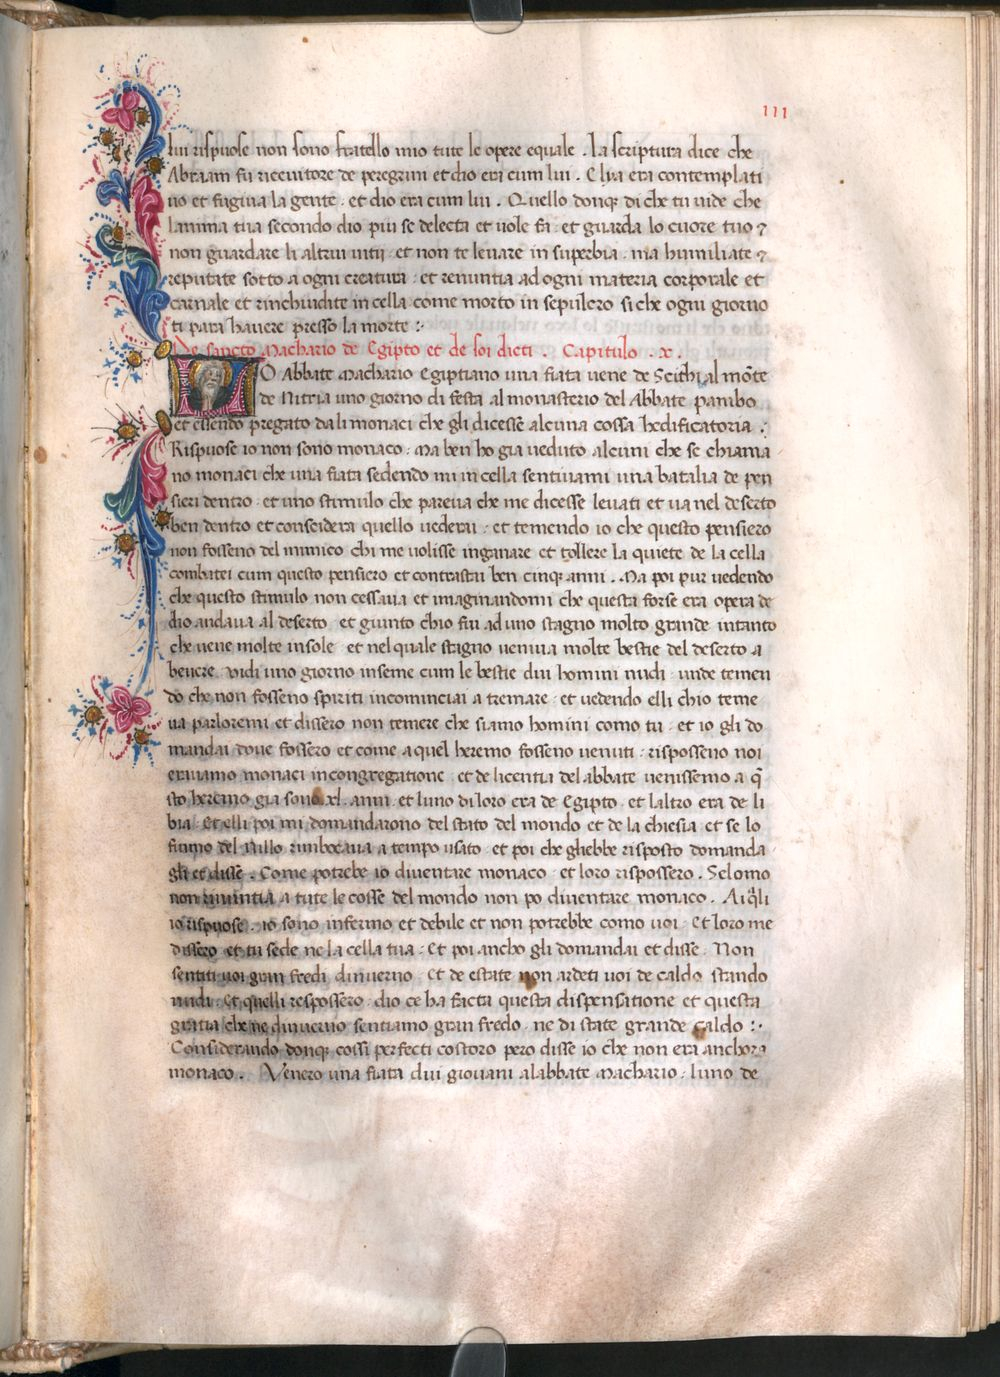 111
lui rispuose non sono fratello mio tute le opere equale . La scriptura dice che
Abraam fu riceuitore de peregrini et dio era cum lui . Elya era contemplati
uo et fugiua la gente . et dio era cum lui . Quello donqꝫ di che tu uide che
lanima tua secondo dio piu se delecta et uole fa . et guarda lo cuore tuo ⁊
non guardare li altrui uitij . et non te leuare in superbia . ma humiliate ⁊
reputate sotto a ogni creatura . et renuntia ad ogni materia corporale et
carnale et rinchiudite in cella come morto in sepulcro si che ogni giorno
ti para hauere presso la morte :·
De sancto Machario de Egipto et de soi dicti . Capitulo . x .
O Abbate Machario Egiptiano una fiata uene de Scithi al mōte
de Nitria uno giorno di festa al monasterio del Abbate pambo
et essendo pregato da li monaci che gli dicesse alcuna cossa hedificatoria .
Rispuose io non sono monaco . Ma ben ho gia ueduto alcuni che se chiama
no monaci che una fiata sedendo mi in cella sentiuami una batalia de pen
sieri dentro . et uno stimulo che pareua che me dicesse leuati et ua nel deserto
ben dentro et conseidera quello uederai . et temendo io che questo pensiero
non fosseno del inimico chi me uolisse inganare et tollere la quiete de la cella
combatei cum questo pensiero et contrastai ben cinqꝫ anni . Ma poi pur uedendo
che questo stimulo non cessaua et imaginandomi che questa forse era opera de
dio andaua al deserto . et giunto chio fui ad uno stagno molto grande intanto
che uene molte insole . et nel quale stagno ueniua molte bestie del deserto a
beuere . uidi uno giorno inseme cum le bestie dui homini nudi . unde temen
do che non fosseno spiriti incominciai a tremare . et uedendo elli chio teme
ua parloremi et dissero non temere che siamo homini como tu . et io gli do
mandai doue fossero et come a quel heremo fosseno uenuti . risposseno noi
erauamo monaci in congregatione . et de licentia del abbate uenissemo a q̄
sto heremo gia sono .xl. anni . et luno di loro era de Egipto . et laltro era de li
bia . Et elli poi mi domandarono del stato del mondo et de la chiesia et se lo
fiumo del Nillo rimbocaua a tempo usato . et poi che ghebbe risposto domanda
gli et disse . Come potrebe io diuentare monaco . et loro rispossero . Se lomo
non rinuntia a tute le cosse del mondo non po diuentare monaco . A i q̄li
io rispuose . io sono infermo et debile et non potrebbe como uoi . Et loro me
dissero et tu sede ne la cella tua . Et poi ancho gli domandai et disse . Non
sentiti uoi gran fredi dinuerno . Et de estate non ardeti uoi de caldo stando
nudi . Et quelli respossero . dio ce ha facta questa dispensatione et questa
gratia che ne dinuerno sentiamo gran fredo . ne di state grande caldo :·
Considerando donqꝫ cossi perfecti costoro pero disse io che non era anchora
monaco . Venero una fiata dui giouani al abbate Machario . luno de